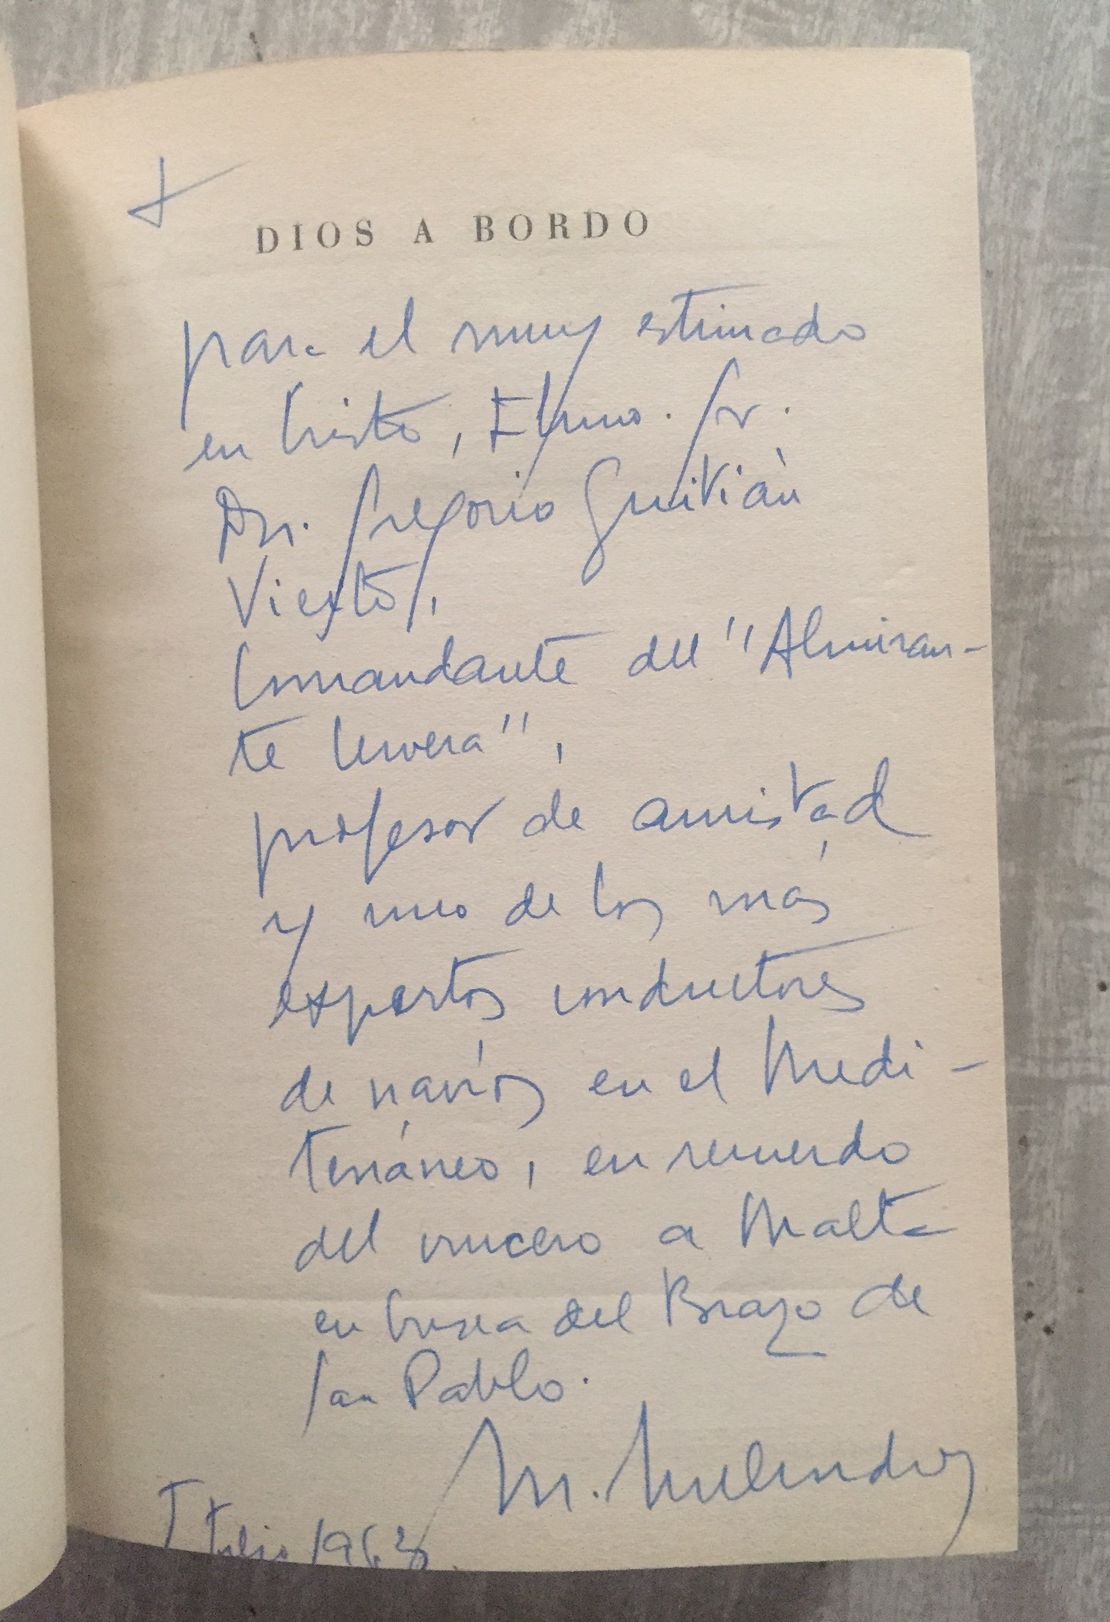 DIOS A BORDO
para el muy estimado
en Cristo, Ilmo. Sr.
Dn. Gregorio Guitián
Vieito,
Comandante del "Almiran-
te Cervera",
profesor de amistad
y uno de los más
expertos conductores
de navíos en el Medi-
terráneo, en recuerdo
del crucero a Malta
en busca del Brazo de
San Pablo.
M. Melendres
Julio 1963